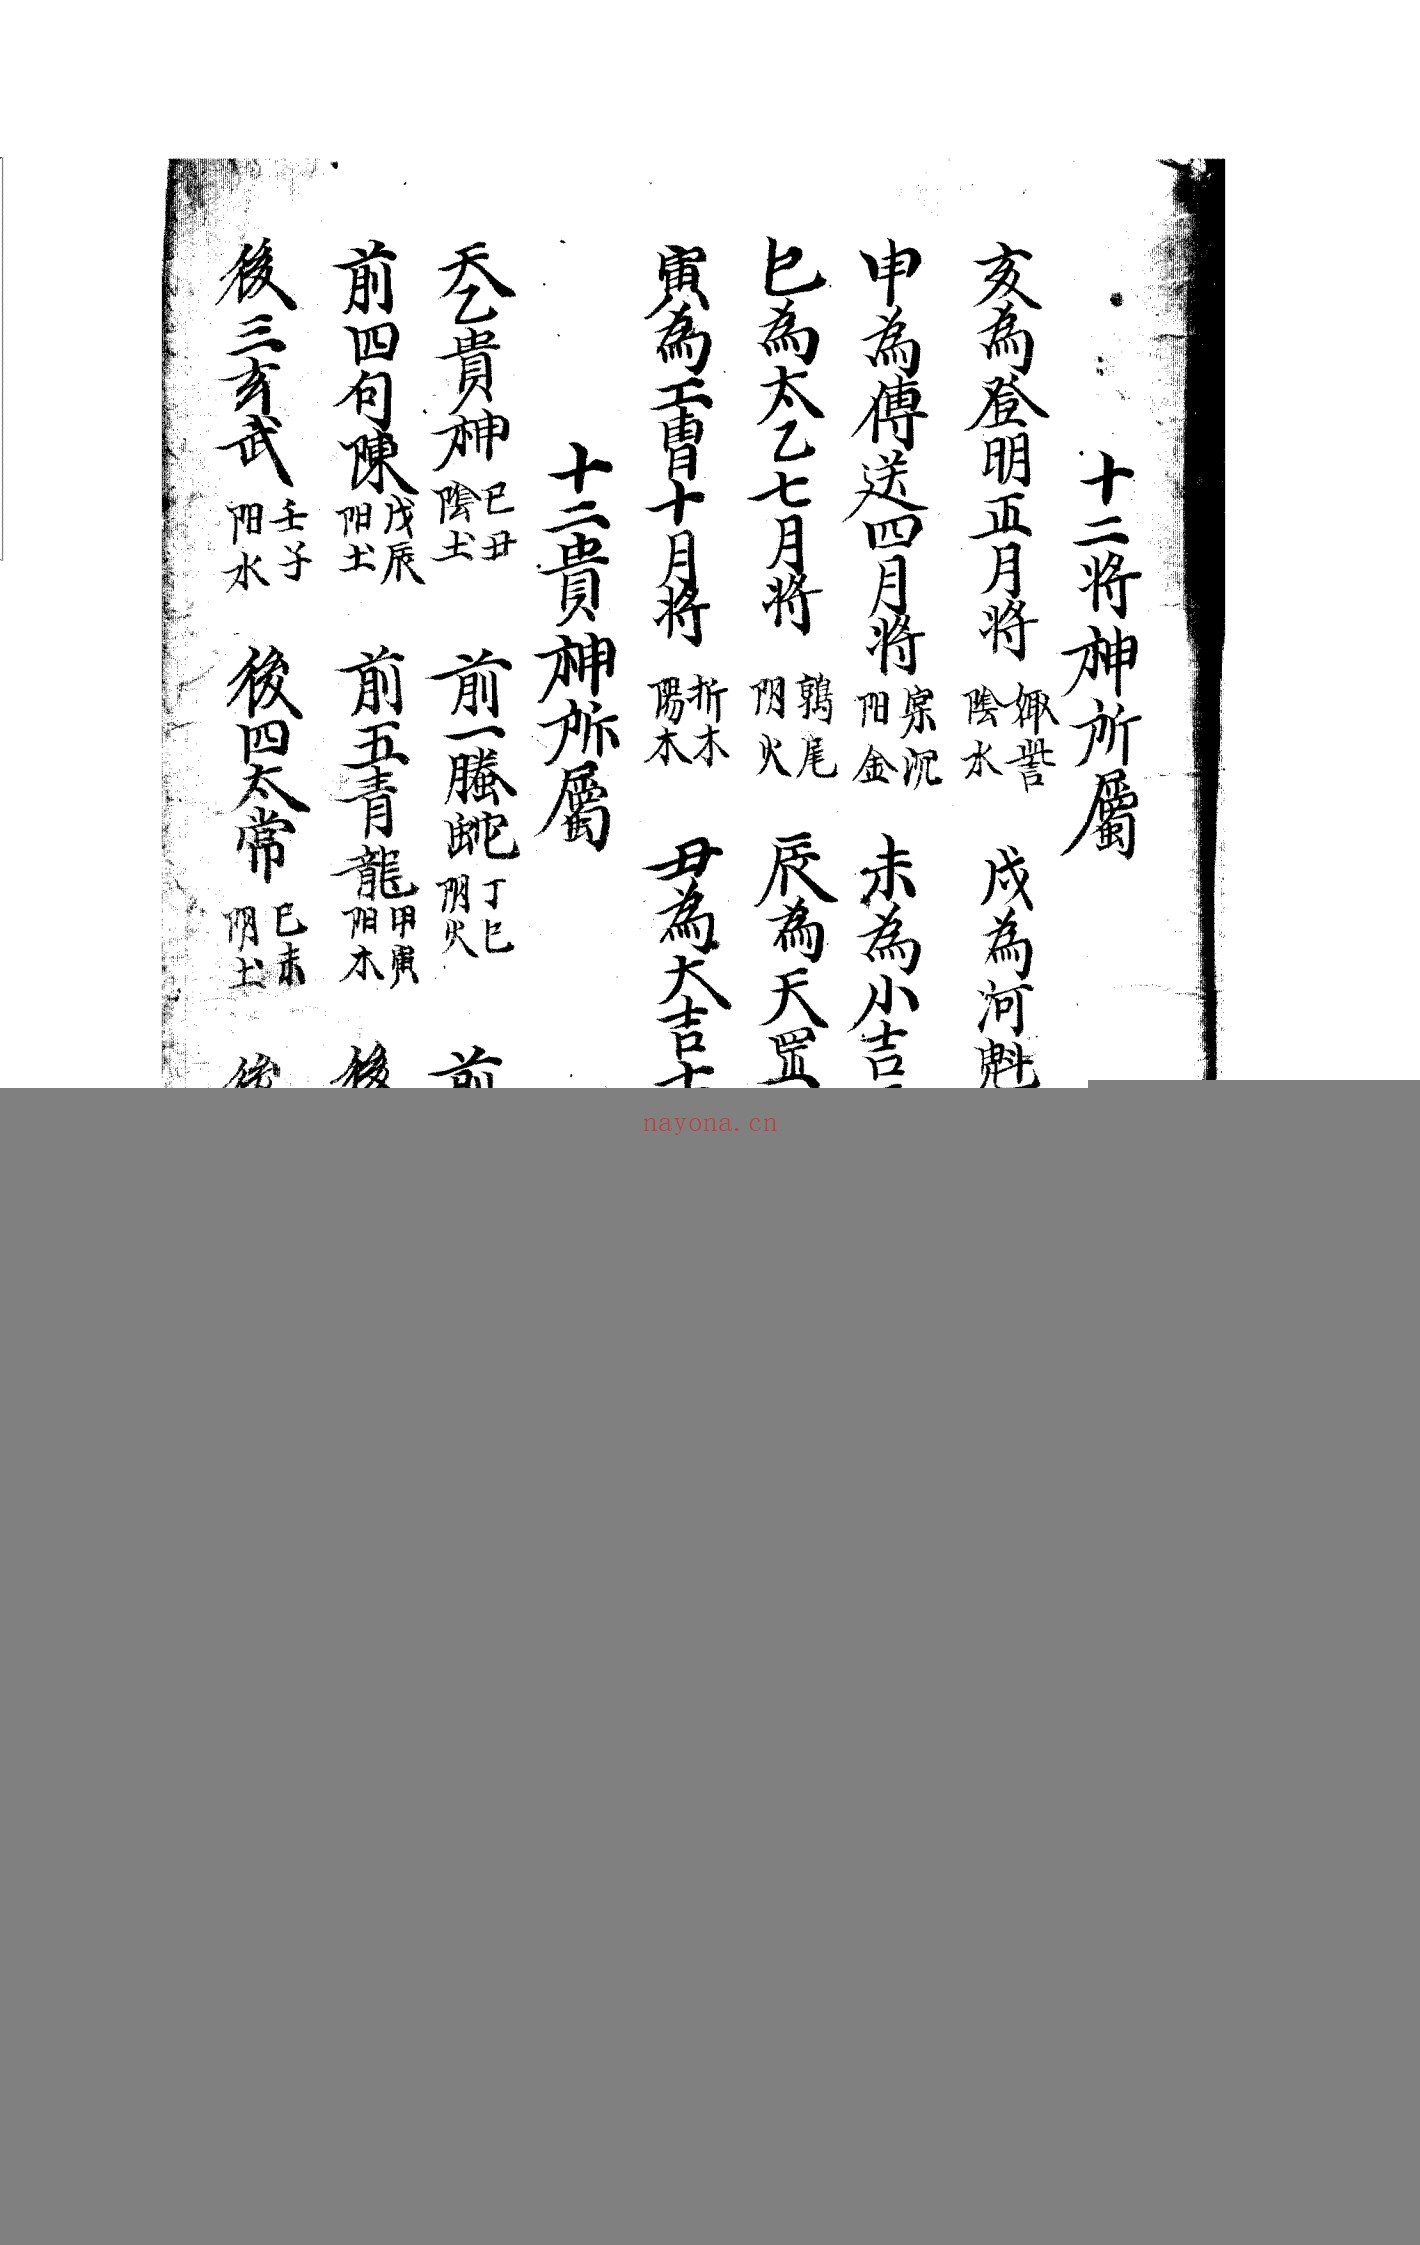 十二将神所屬
亥為登明正月将 娵訾 陰水 戌為河魁
申為傳送四月将 實沉 阳金 未為小吉
巳為太乙七月将 鶉尾 阴火 辰為天罡
寅為工曹十月将 折木 陽木 丑為大吉十
十二貴神所屬
天乙貴神 己丑 陰土 前一螣蛇 丁巳 阴火 前
前四勾陳 戊辰 阳土 前五青龍 甲寅 阳木 後
後三玄武 壬子 阳水 後四太常 己未 阴土 後
nayona.cn